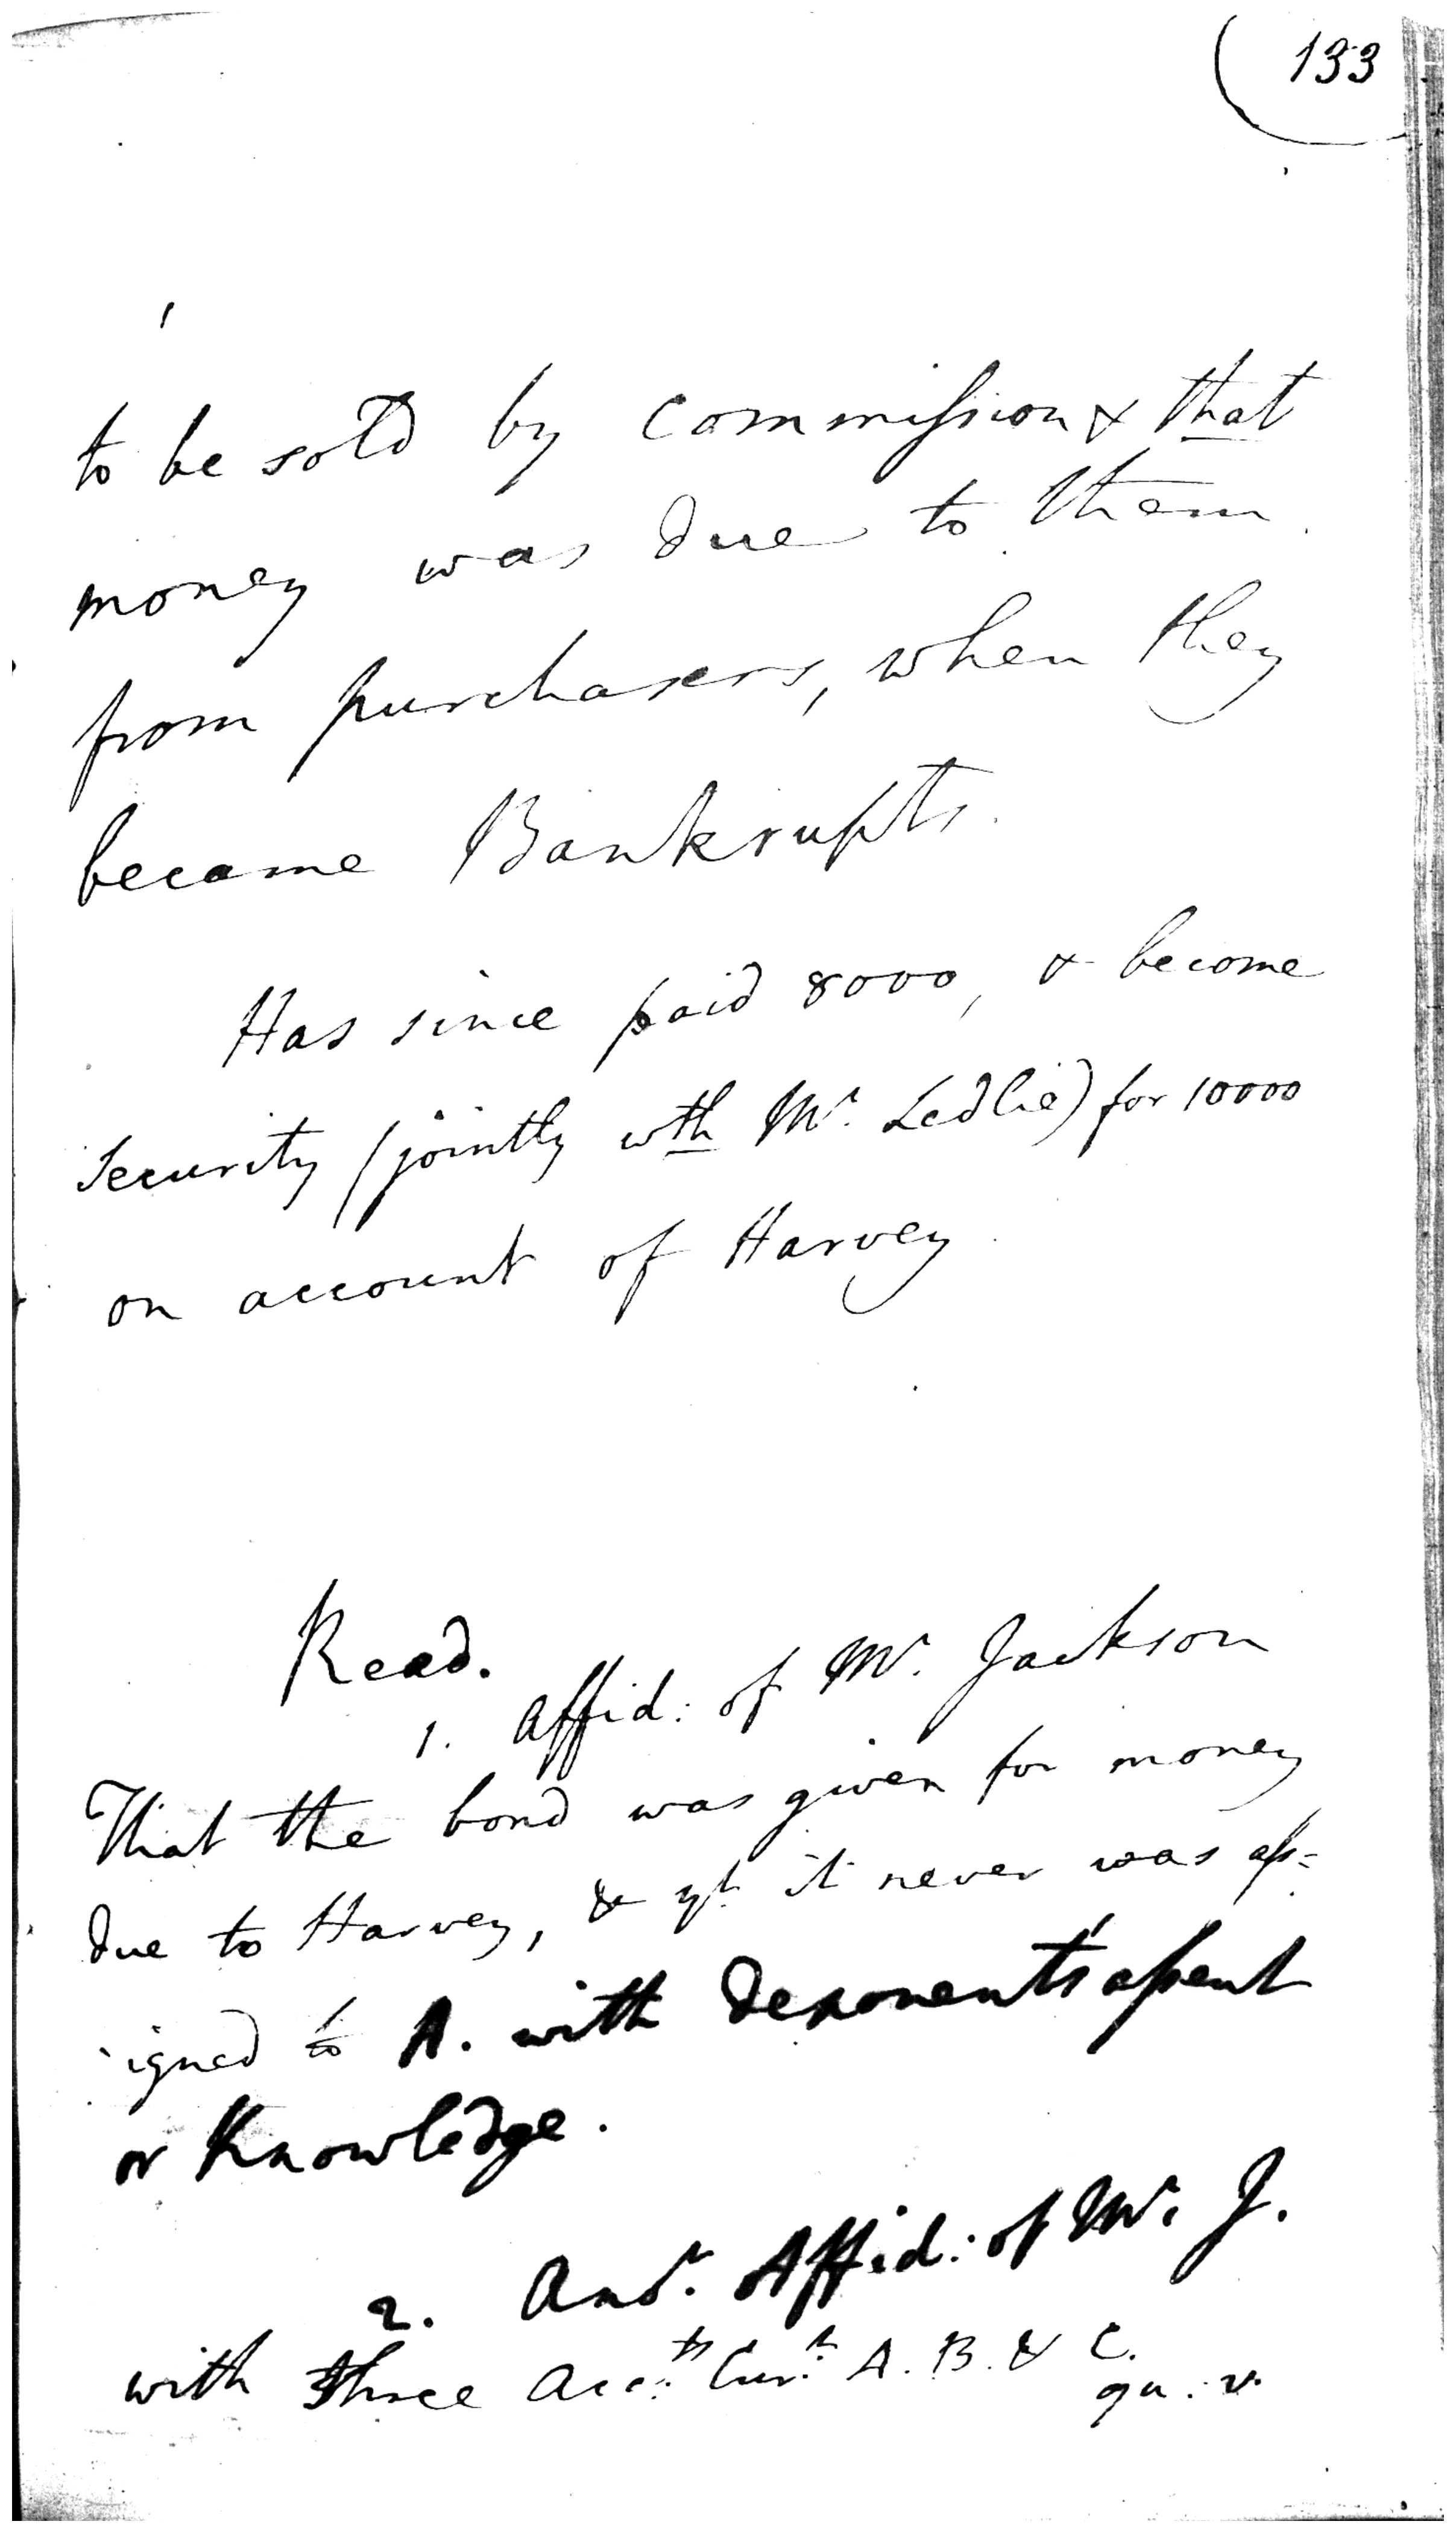 133
to be sold by Commission & that
money was due to them
from purchasers, when they
became Bankrupts.
Has since paid 8000, & become
Security (jointly wth Mr. Ledlie) for 10000
on account of Harvey.
Read.
1. Affid: of Mr. Jackson
That the bond was given for money
due to Harvey, & yt it never was ass=
igned to A. with Deponent's assent
or Knowledge.
2. Anor. Affid: of Mr. J.
with three Accts. Curt. A. B. & C.
qu. v.